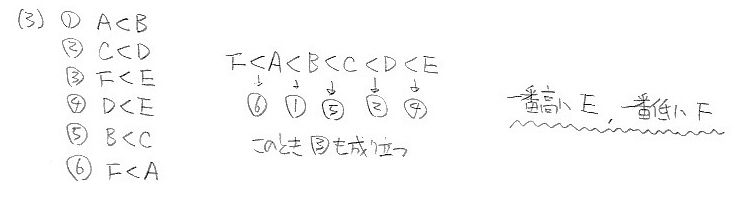 (3) ① A<B
② C<D
③ F<E
④ D<E
⑤ B<C
⑥ F<A
F<A<B<C<D<E
↓ ↓ ↓ ↓ ↓
⑥ ① ⑤ ② ④
このとき③も成り立つ
一番高い E, 一番低い F